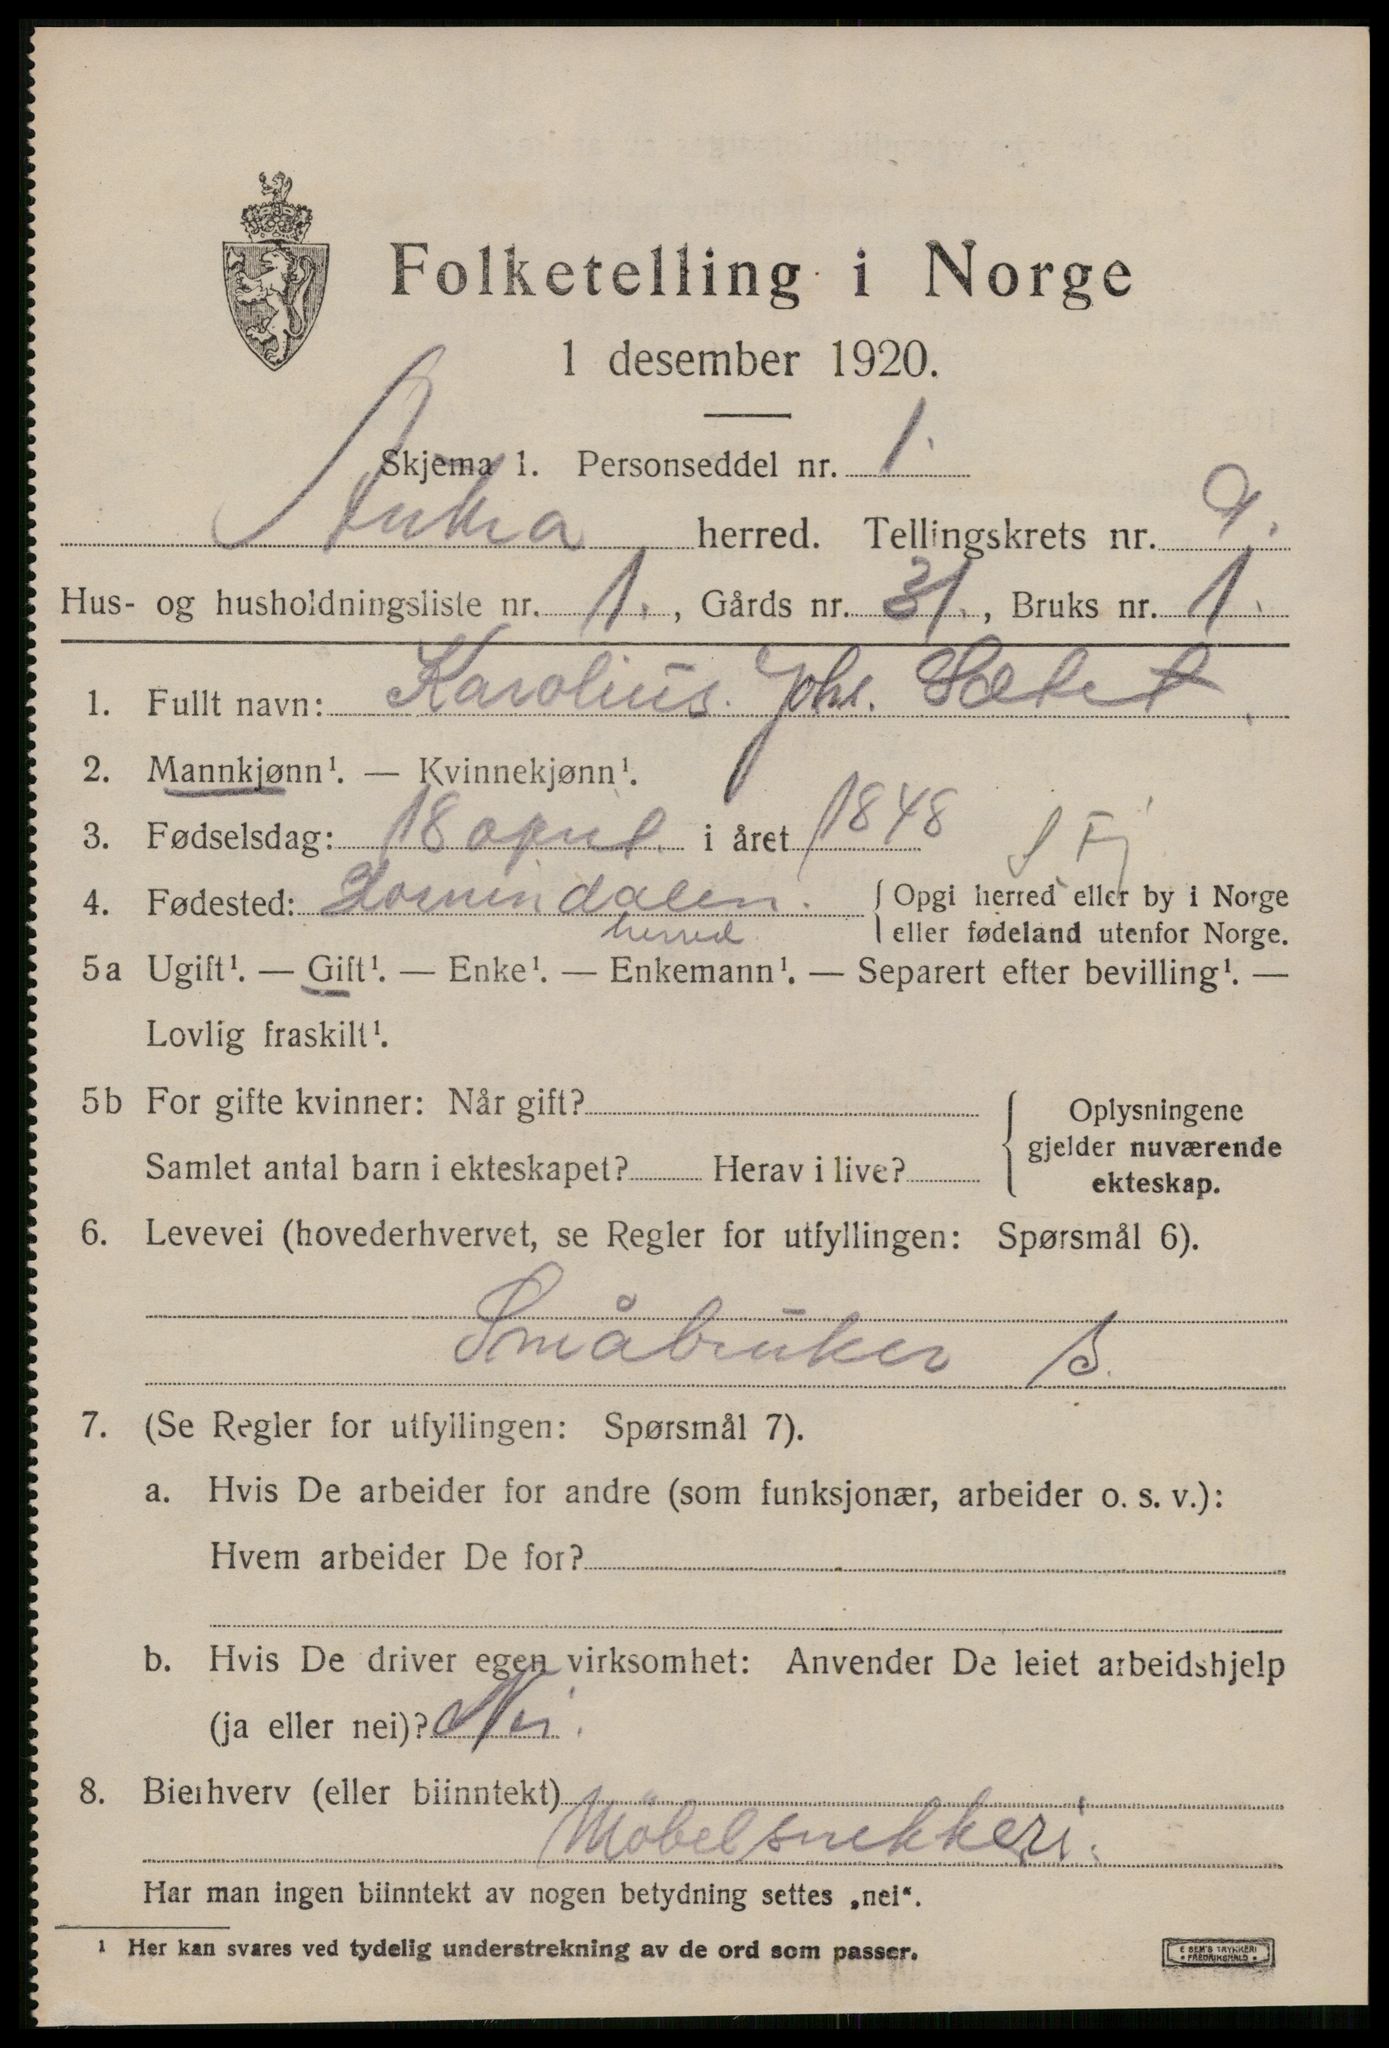 Folketelling i Norge
1 desember 1920.
Skjema 1. Personseddel nr. 1.
Aukra herred. Tellingskrets nr. 9.
Hus- og husholdningsliste nr. 1., Gårds nr. 31., Bruks nr. 1.
1. Fullt navn: Karolius. Johs. Sætet
2. Mannkjønn¹. — Kvinnekjønn¹.
3. Fødselsdag: 18 april. i året 1848
S Fj
4. Fødested: dalen. { Opgi herred eller by i Norge
herred eller fødeland utenfor Norge.
5a Ugift¹. — Gift¹. — Enke¹. — Enkemann¹. — Separert efter bevilling¹. —
Lovlig fraskilt¹.
5b For gifte kvinner: Når gift? { Oplysningene
gjelder nuværende
Samlet antal barn i ekteskapet? Herav i live? ekteskap.
6. Levevei (hovederhvervet, se Regler for utfyllingen: Spørsmål 6).
Småbruker S.
7. (Se Regler for utfyllingen: Spørsmål 7).
a. Hvis De arbeider for andre (som funksjonær, arbeider o. s. v.):
Hvem arbeider De for?
b. Hvis De driver egen virksomhet: Anvender De leiet arbeidshjelp
(ja eller nei)? Nei.
8. Bierhverv (eller biinntekt)
Möbelsnekkeri.
Har man ingen biinntekt av nogen betydning settes „nei“.
¹ Her kan svares ved tydelig understrekning av de ord som passer.
E SEM'S TRYKKERI
• FREDRIKSHALD •